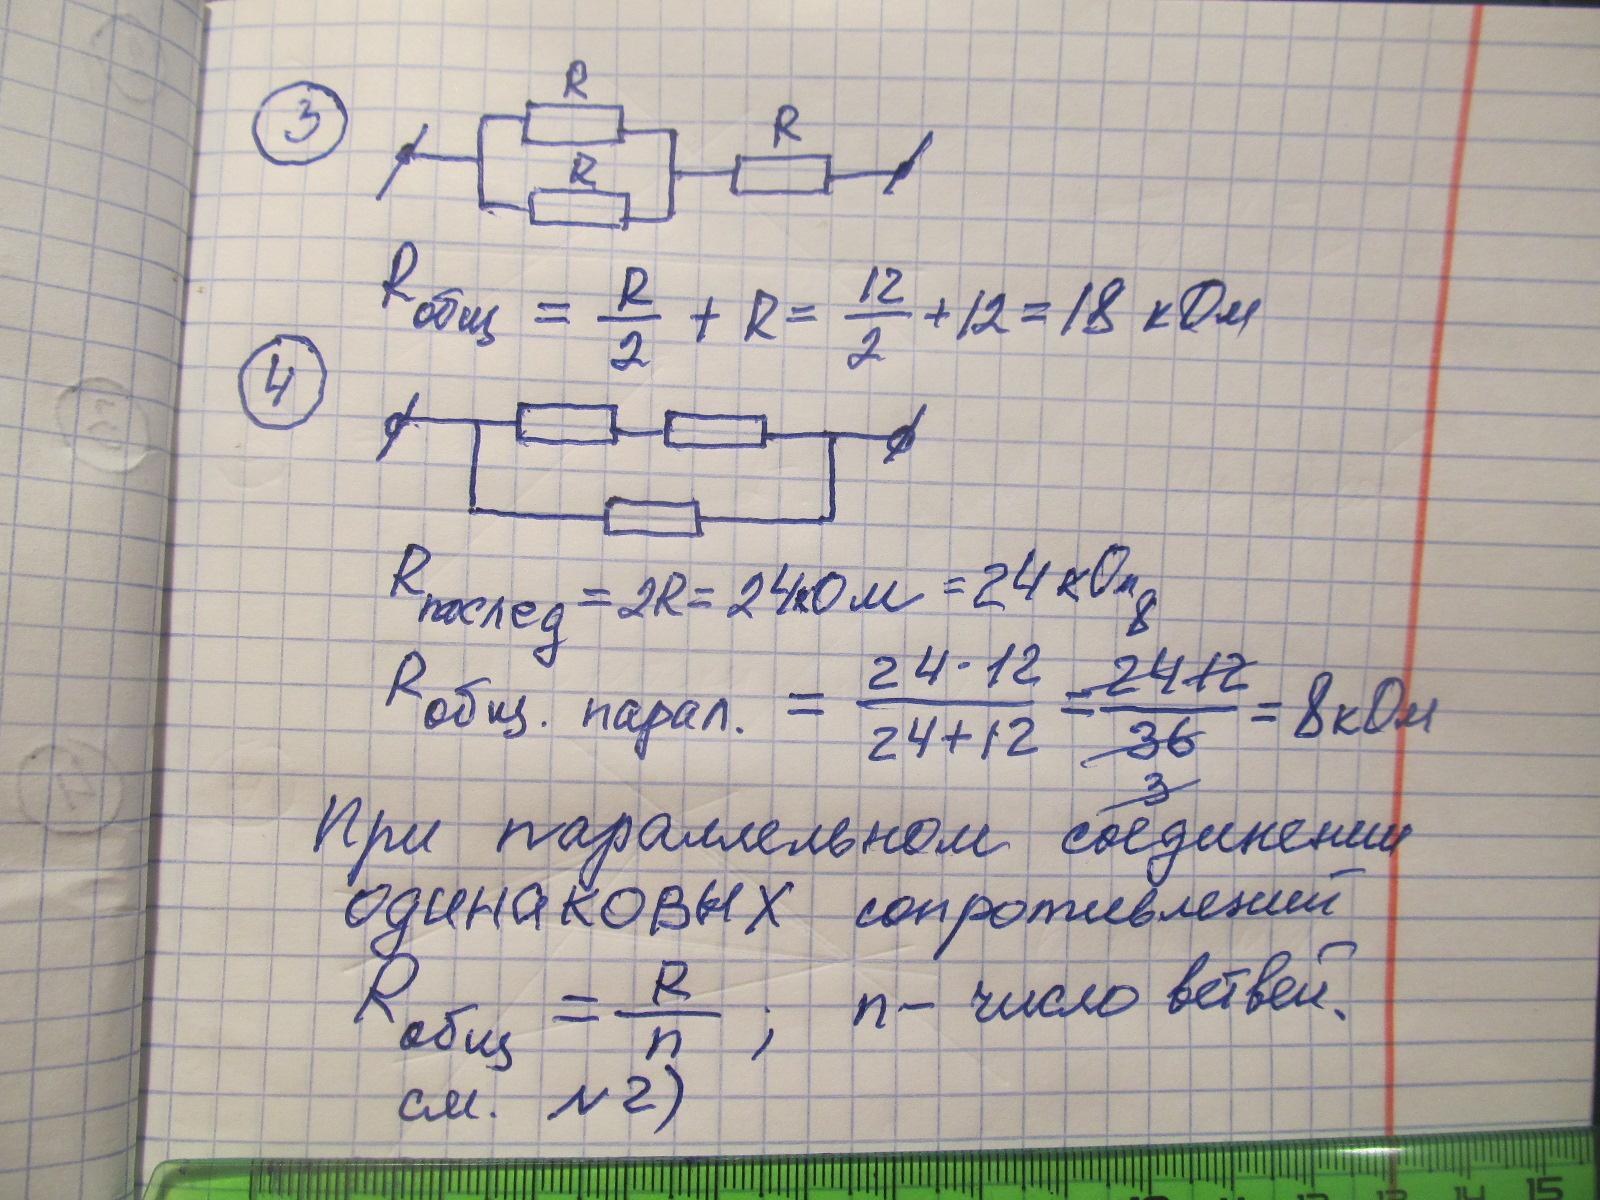 3
R
R
R
Rобщ = R/2 + R = 12/2 + 12 = 18 кОм
4
Rпослед = 2R = 24кОм = 24 кОм
8
Rобщ. парал. = 24·12/24+12 = 24·12/36 = 8кОм
3
При параллельном соединении
одинаковых сопротивлений
Rобщ = R/n ; n – число ветвей.
см. N2)
13 14 15